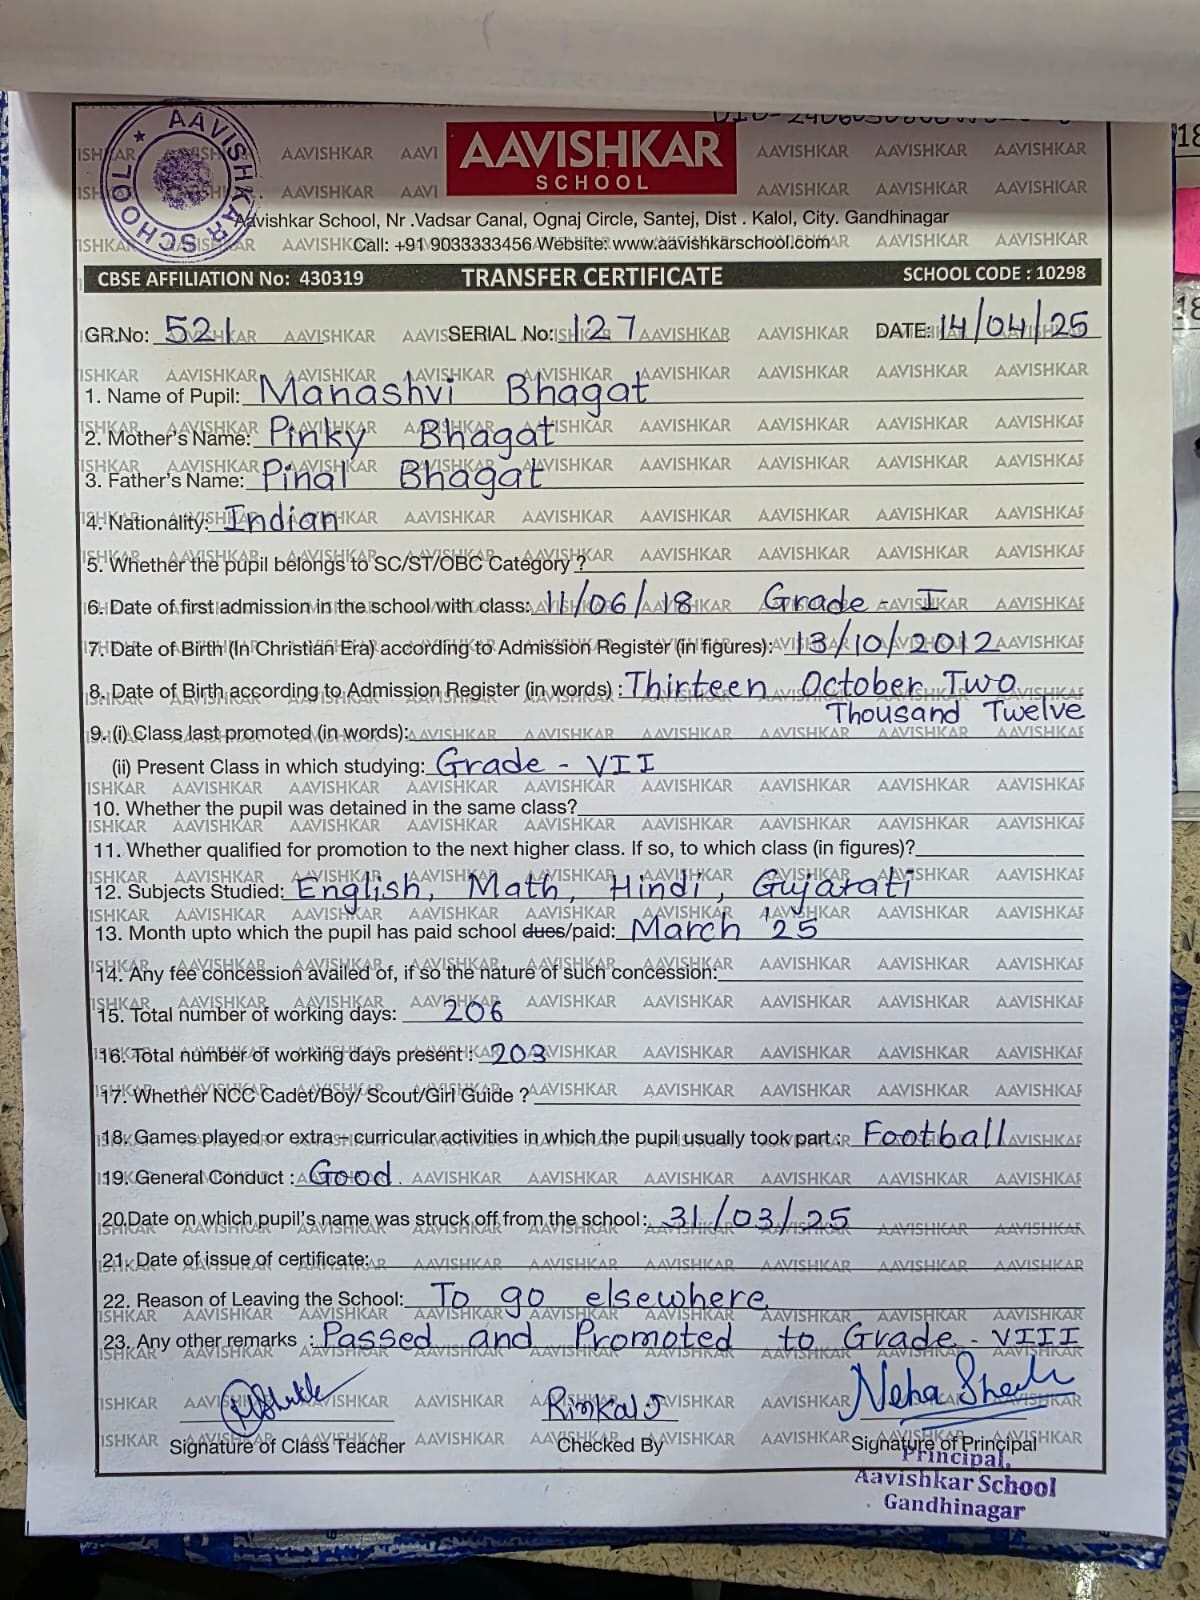 AAVISHKAR SCHOOL
AAVISHKAR
SCHOOL
Aavishkar School, Nr .Vadsar Canal, Ognaj Circle, Santej, Dist . Kalol, City. Gandhinagar
Call: +91 9033333456 Website: www.aavishkarschool.com
CBSE AFFILIATION No: 430319 TRANSFER CERTIFICATE SCHOOL CODE : 10298
GR.No: 521 SERIAL No: 127 DATE: 14/04/25
1. Name of Pupil: Manashvi Bhagat
2. Mother's Name: Pinky Bhagat
3. Father's Name: Pinal Bhagat
4. Nationality: Indian
5. Whether the pupil belongs to SC/ST/OBC Category ?
6. Date of first admission in the school with class: 11/06/18 Grade - I
7. Date of Birth (In Christian Era) according to Admission Register (in figures): 13/10/2012
8. Date of Birth according to Admission Register (in words) : Thirteen October Two
Thousand Twelve
9. (i) Class last promoted (in words):
(ii) Present Class in which studying: Grade - VII
10. Whether the pupil was detained in the same class?
11. Whether qualified for promotion to the next higher class. If so, to which class (in figures)?
12. Subjects Studied: English, Math, Hindi, Gujarati
13. Month upto which the pupil has paid school dues/paid: March '25
14. Any fee concession availed of, if so the nature of such concession:
15. Total number of working days: 206
16. Total number of working days present : 203
17. Whether NCC Cadet/Boy/ Scout/Girl Guide ?
18. Games played or extra – curricular activities in which the pupil usually took part : Football
19. General Conduct : Good.
20.Date on which pupil's name was struck off from the school: 31/03/25
21. Date of issue of certificate:
22. Reason of Leaving the School: To go elsewhere
23. Any other remarks : Passed and Promoted to Grade - VIII
Rinkal J
Signature of Class Teacher Checked By Signature of Principal
Principal,
Aavishkar School
Gandhinagar